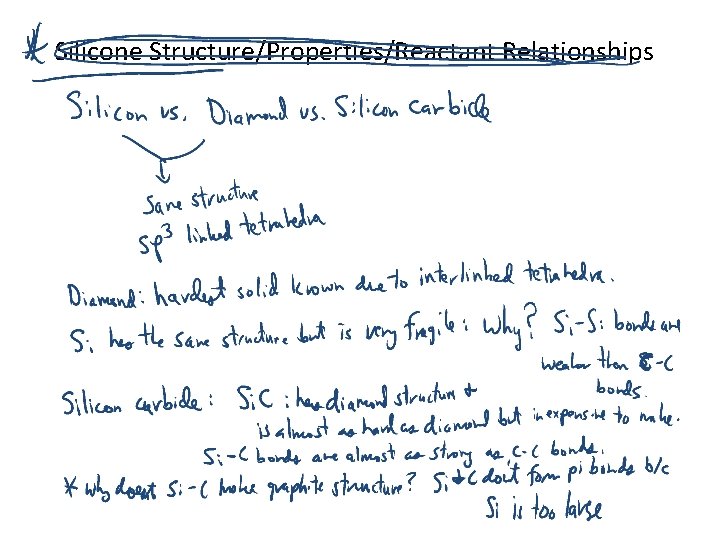 * Silicone Structure/Properties/Reactant Relationships
Silicon vs. Diamond vs. Silicon carbide
Same structure
sp³ linked tetrahedra
Diamond: hardest solid known due to interlinked tetrahedra.
Si has the same structure but is very fragile: Why? Si-Si bonds are
weaker than C-C
bonds.
Silicon carbide: SiC: has diamond structure +
is almost as hard as diamond but inexpensive to make.
Si-C bonds are almost as strong as C-C bonds.
* Why doesnt Si-C make graphite structure? Si + C dont form pi bonds b/c
Si is too large